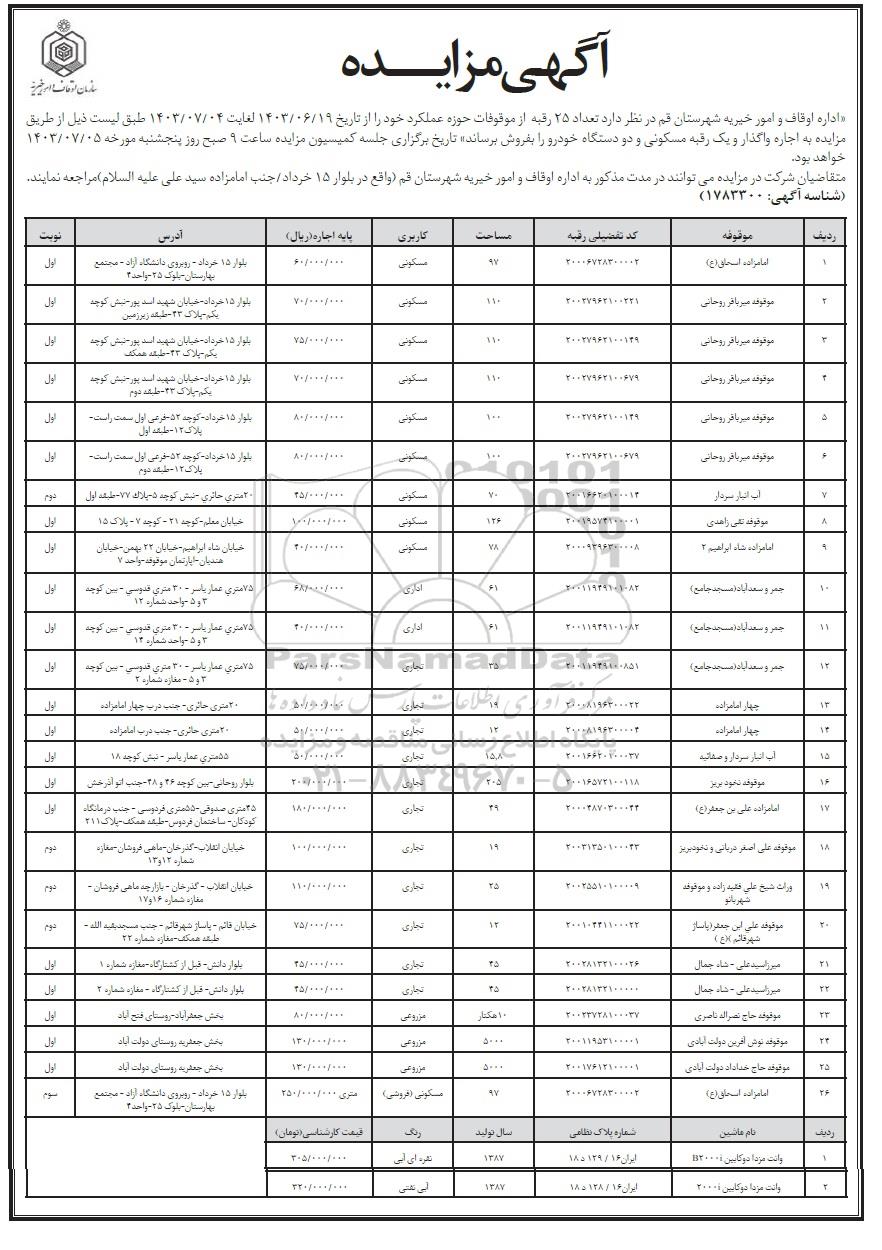 سازمان اوقاف و امور خیریه
آگهی مزایـــــده
«اداره اوقاف و امور خیریه شهرستان قم در نظر دارد تعداد ۲۵ رقبه از موقوفات حوزه عملکرد خود را از تاریخ ۱۴۰۳/۰۶/۱۹ لغایت ۱۴۰۳/۰۷/۰۴ طبق لیست ذیل از طریق
مزایده به اجاره واگذار و یک رقبه مسکونی و دو دستگاه خودرو را بفروش برساند» تاریخ برگزاری جلسه کمیسیون مزایده ساعت ۹ صبح روز پنجشنبه مورخه ۱۴۰۳/۰۷/۰۵
خواهد بود.
متقاضیان شرکت در مزایده می توانند در مدت مذکور به اداره اوقاف و امور خیریه شهرستان قم (واقع در بلوار ۱۵ خرداد/جنب امامزاده سید علی علیه السلام)مراجعه نمایند.
(شناسه آگهی: ۱۷۸۳۳۰۰)
ردیف موقوفه کد تفضیلی رقبه مساحت کاربری پایه اجاره(ریال) آدرس نوبت
۱ امامزاده اسحاق(ع) ۲۰۰۰۶۷۲۸۳۰۰۰۰۲ ۹۷ مسکونی ۶۰/۰۰۰/۰۰۰ بلوار ۱۵ خرداد - روبروی دانشگاه آزاد - مجتمع اول
بهارستان-بلوک ۲۵-واحد۴
۲ موقوفه میرباقر روحانی ۲۰۰۲۷۹۶۲۱۰۰۲۲۱ ۱۱۰ مسکونی ۷۰/۰۰۰/۰۰۰ بلوار ۱۵خرداد-خیابان شهید اسد پور-نبش کوچه اول
یکم-پلاک ۴۳-طبقه زیرزمین
۳ موقوفه میرباقر روحانی ۲۰۰۲۷۹۶۲۱۰۰۱۴۹ ۱۱۰ مسکونی ۷۵/۰۰۰/۰۰۰ بلوار ۱۵خرداد-خیابان شهید اسد پور-نبش کوچه اول
یکم-پلاک ۴۳-طبقه همکف
۴ موقوفه میرباقر روحانی ۲۰۰۲۷۹۶۲۱۰۰۶۷۹ ۱۱۰ مسکونی ۷۰/۰۰۰/۰۰۰ بلوار ۱۵خرداد-خیابان شهید اسد پور-نبش کوچه اول
یکم-پلاک ۴۳-طبقه دوم
۵ موقوفه میرباقر روحانی ۲۰۰۲۷۹۶۲۱۰۰۱۴۹ ۱۰۰ مسکونی ۸۰/۰۰۰/۰۰۰ بلوار ۱۵خرداد-کوچه ۵۲-فرعی اول سمت راست- اول
پلاک۱۲-طبقه اول
۶ موقوفه میرباقر روحانی ۲۰۰۲۷۹۶۲۱۰۰۶۷۹ ۱۰۰ مسکونی ۸۰/۰۰۰/۰۰۰ بلوار ۱۵خرداد-کوچه ۵۲-فرعی اول سمت راست- اول
پلاک۱۲-طبقه دوم
۷ آب انبار سردار ۲۰۰۱۶۶۲۰۱۰۰۰۱۴ ۷۰ مسکونی ۴۵/۰۰۰/۰۰۰ ۲۰متري حائري -نبش کوچه ۵-پلاك ۷۷-طبقه اول دوم
۸ موقوفه تقی زاهدی ۲۰۰۱۹۵۷۴۱۰۰۰۰۱ ۱۲۶ مسکونی ۱۰۰/۰۰۰/۰۰۰ خیابان معلم-کوچه ۲۱ - کوچه ۷ - پلاک ۱۵ اول
۹ امامزاده شاه ابراهیم ۲ ۲۰۰۰۹۳۹۶۳۰۰۰۰۸ ۷۸ مسکونی ۴۰/۰۰۰/۰۰۰ خیابان شاه ابراهیم-خیابان ۲۲ بهمن-خیابان اول
هندیان-اپارتمان موقوفه-واحد ۷
۱۰ جمر و سعدآباد(مسجدجامع) ۲۰۰۱۱۹۴۹۱۰۱۰۸۲ ۶۱ اداری ۶۸/۰۰۰/۰۰۰ ۷۵متري عمار یاسر - ۳۰ متري قدوسي - بین کوچه اول
۳ و ۵ -واحد شماره ۱۲
۱۱ جمر و سعدآباد(مسجدجامع) ۲۰۰۱۱۹۴۹۱۰۱۰۸۲ ۶۱ اداری ۴۰/۰۰۰/۰۰۰ ۷۵متري عمار یاسر - ۳۰ متري قدوسي - بین کوچه اول
۳ و ۵ -واحد شماره ۱۴
۱۲ جمر و سعدآباد(مسجدجامع) ۲۰۰۱۱۹۴۹۱۰۰۸۵۱ ۳۵ تجاری ۷۵/۰۰۰/۰۰۰ ۷۵متري عمار یاسر - ۳۰ متري قدوسي - بین کوچه اول
۳ و ۵ - مغازه شماره ۲
۱۳ چهار امامزاده ۲۰۰۰۸۱۹۶۳۰۰۰۲۲ ۱۹ تجاری ۵۰/۰۰۰/۰۰۰ ۲۰متری حائری- جنب درب چهار امامزاده اول
۱۴ چهار امامزاده ۲۰۰۰۸۱۹۶۳۰۰۰۰۴ ۱۲ تجاری ۵۰/۰۰۰/۰۰۰ ۲۰متری حائری- جنب درب امامزاده اول
۱۵ آب انبار سردار و صفائیه ۲۰۰۱۶۶۲۰۱۰۰۰۳۷ ۱۵٫۸ تجاری ۵۰/۰۰۰/۰۰۰ ۵۵متري عمار یاسر - نبش کوچه ۱۸ اول
۱۶ موقوفه نخود بریز ۲۰۰۱۶۵۷۲۱۰۰۱۱۸ ۲۰۵ تجاری ۲۰۰/۰۰۰/۰۰۰ بلوار روحانی-بین کوچه ۴۶ و ۴۸-جنب اتو آذرخش اول
۱۷ امامزاده علی بن جعفر(ع) ۲۰۰۰۴۸۷۰۳۰۰۰۴۴ ۴۹ تجاری ۱۸۰/۰۰۰/۰۰۰ ۴۵متری صدوقی-۵۵متری فردوسی - جنب درمانگاه اول
کودکان- ساختمان فردوس-طبقه همکف-پلاک۲۱۱
۱۸ موقوفه علی اصغر دربانی و نخودبریز ۲۰۰۳۱۳۵۰۱۰۰۰۴۳ ۱۹ تجاری ۱۰۰/۰۰۰/۰۰۰ خیابان انقلاب-گذرخان-ماهی فروشان-مغازه دوم
شماره ۱۲و۱۳
۱۹ وراث شیخ علي فقیه زاده و موقوفه ۲۰۰۲۵۵۱۰۱۰۰۰۰۹ ۲۵ تجاری ۱۱۰/۰۰۰/۰۰۰ خیابان انقلاب - گذرخان - بازارچه ماهی فروشان - دوم
شهربانو مغازه شماره ۱۶و۱۷
۲۰ موقوفه علي ابن جعفر(پاساژ ۲۰۰۱۰۴۴۱۱۰۰۰۲۲ ۱۲ تجاری ۷۵/۰۰۰/۰۰۰ خیابان قائم - پاساژ شهرقائم - جنب مسجدبقیه الله - دوم
شهرقائم )(ع ) طبقه همکف-مغازه شماره ۲۲
۲۱ میرزاسیدعلی - شاه جمال ۲۰۰۲۸۱۳۲۱۰۰۰۲۶ ۴۵ تجاری ۴۵/۰۰۰/۰۰۰ بلوار دانش- قبل از کشتارگاه-مغازه شماره ۱ اول
۲۲ میرزاسیدعلی - شاه جمال ۲۰۰۲۸۱۳۲۱۰۰۰۰۰ ۴۵ تجاری ۴۵/۰۰۰/۰۰۰ بلوار دانش- قبل از کشتارگاه - مغازه شماره ۲ اول
۲۳ موقوفه حاج نصراله ناصری ۲۰۰۲۳۷۲۸۱۰۰۰۳۷ ۱۰هکتار مزروعی ۸۰/۰۰۰/۰۰۰ بخش جعفرآباد-روستای فتح آباد اول
۲۴ موقوفه نوش آفرین دولت آبادی ۲۰۰۱۱۹۵۳۱۰۰۰۰۱ ۵۰۰۰ مزروعی ۱۳۰/۰۰۰/۰۰۰ بخش جعفریه روستای دولت آباد اول
۲۵ موقوفه حاج خداداد دولت آبادی ۲۰۰۱۷۶۱۲۱۰۰۰۰۱ ۵۰۰۰ مزروعی ۱۳۰/۰۰۰/۰۰۰ بخش جعفریه روستای دولت آباد اول
۲۶ امامزاده اسحاق(ع) ۲۰۰۰۶۷۲۸۳۰۰۰۰۲ ۹۷ مسکونی (فروشی) متری ۲۵۰/۰۰۰/۰۰۰ بلوار ۱۵ خرداد - روبروی دانشگاه آزاد - مجتمع سوم
بهارستان-بلوک ۲۵-واحد۴
ردیف نام ماشین شماره پلاک نظامی سال تولید رنگ قیمت کارشناسی(تومان)
۱ وانت مزدا دوکابین B۲۰۰۰i ایران۱۶ / ۱۲۹ د ۱۸ ۱۳۸۷ نقره ای آبی ۳۰۵/۰۰۰/۰۰۰
۲ وانت مزدا دوکابین ۲۰۰۰i ایران۱۶ / ۱۲۸ د ۱۸ ۱۳۸۷ آبی نفتی ۳۲۰/۰۰۰/۰۰۰
ParsNamadData
مرکز آوری اطلاعات پارس نماد داده ها
پایگاه اطلاع رسانی مناقصه و مزایده
۰۲۱-۸۸۳۴۹۶۷۰-۵